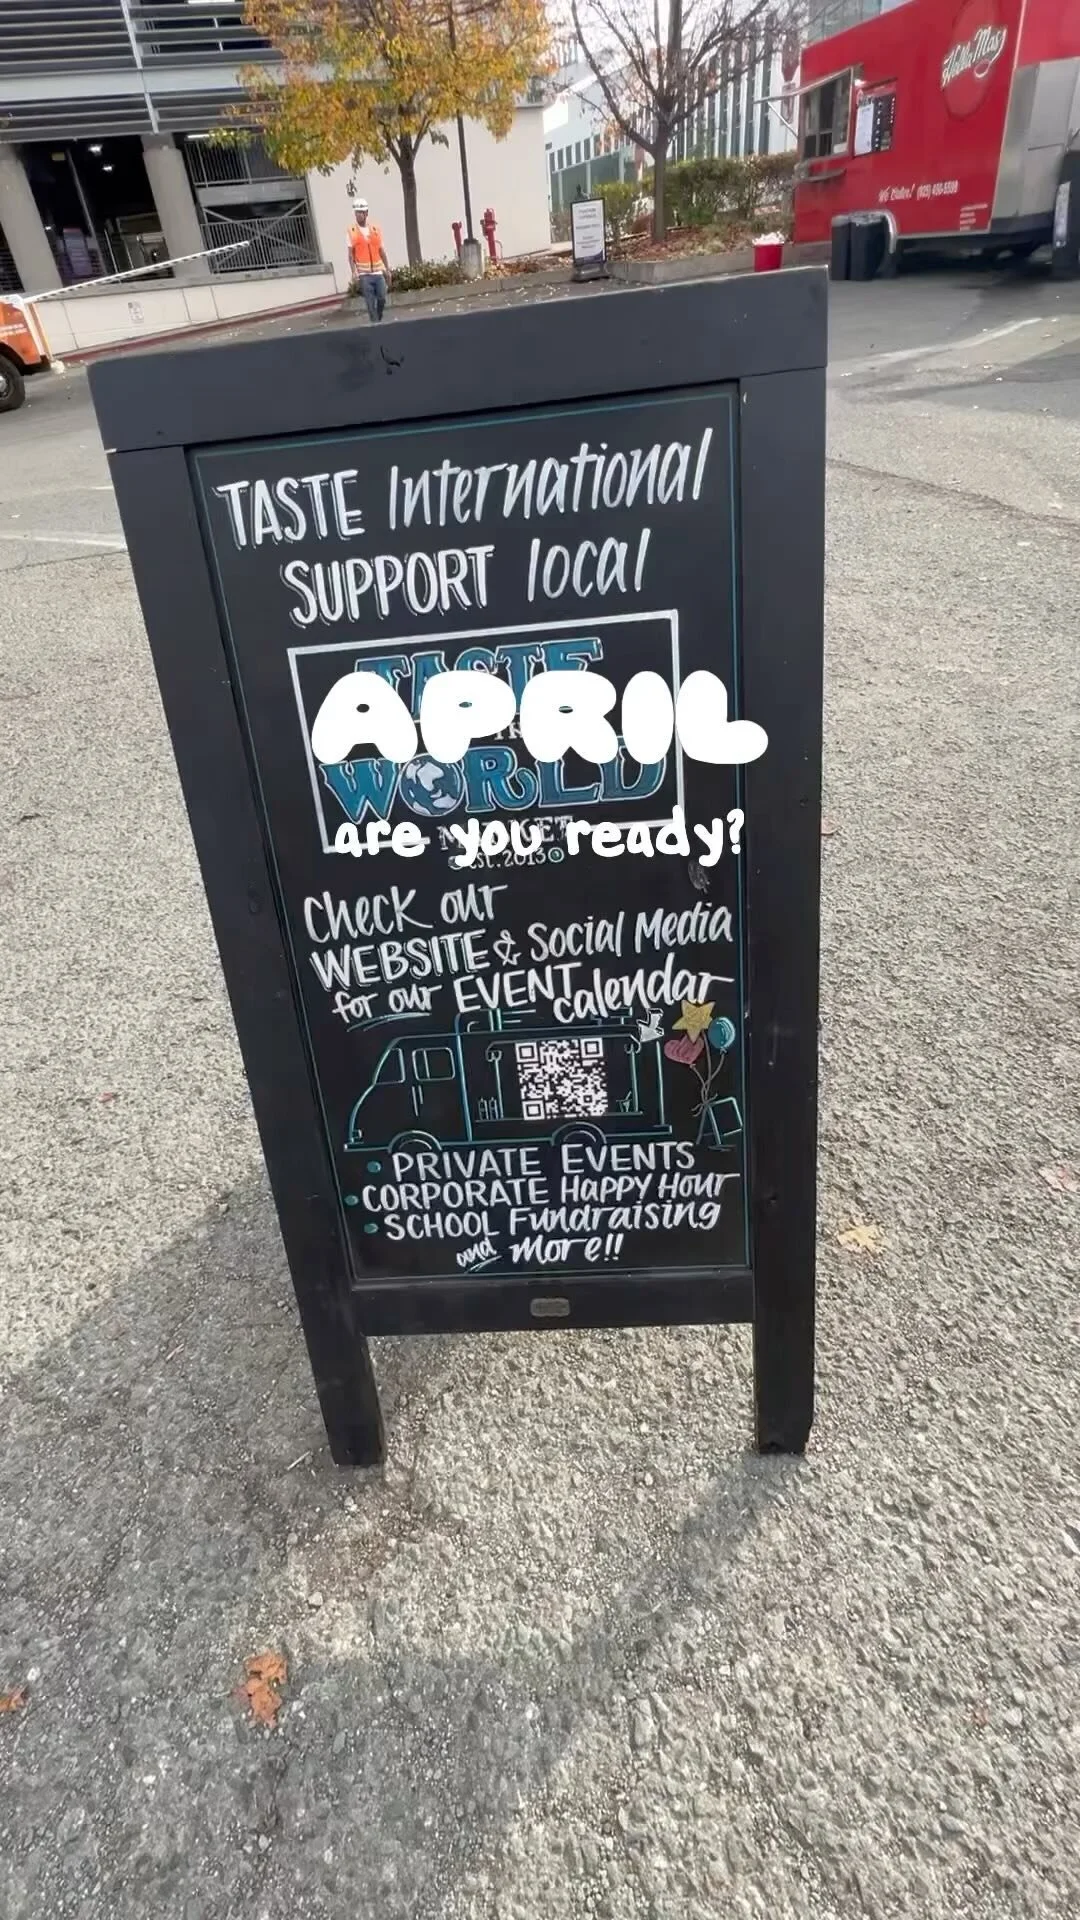 Holla Mas
We Cater!
TASTE International
SUPPORT local
TASTE
APRIL
WORLD
are you ready?
est. 2013
Check our
WEBSITE & Social Media
for our EVENT calendar
• PRIVATE EVENTS
• CORPORATE HAPPY Hour
• SCHOOL Fundraising
and more!!